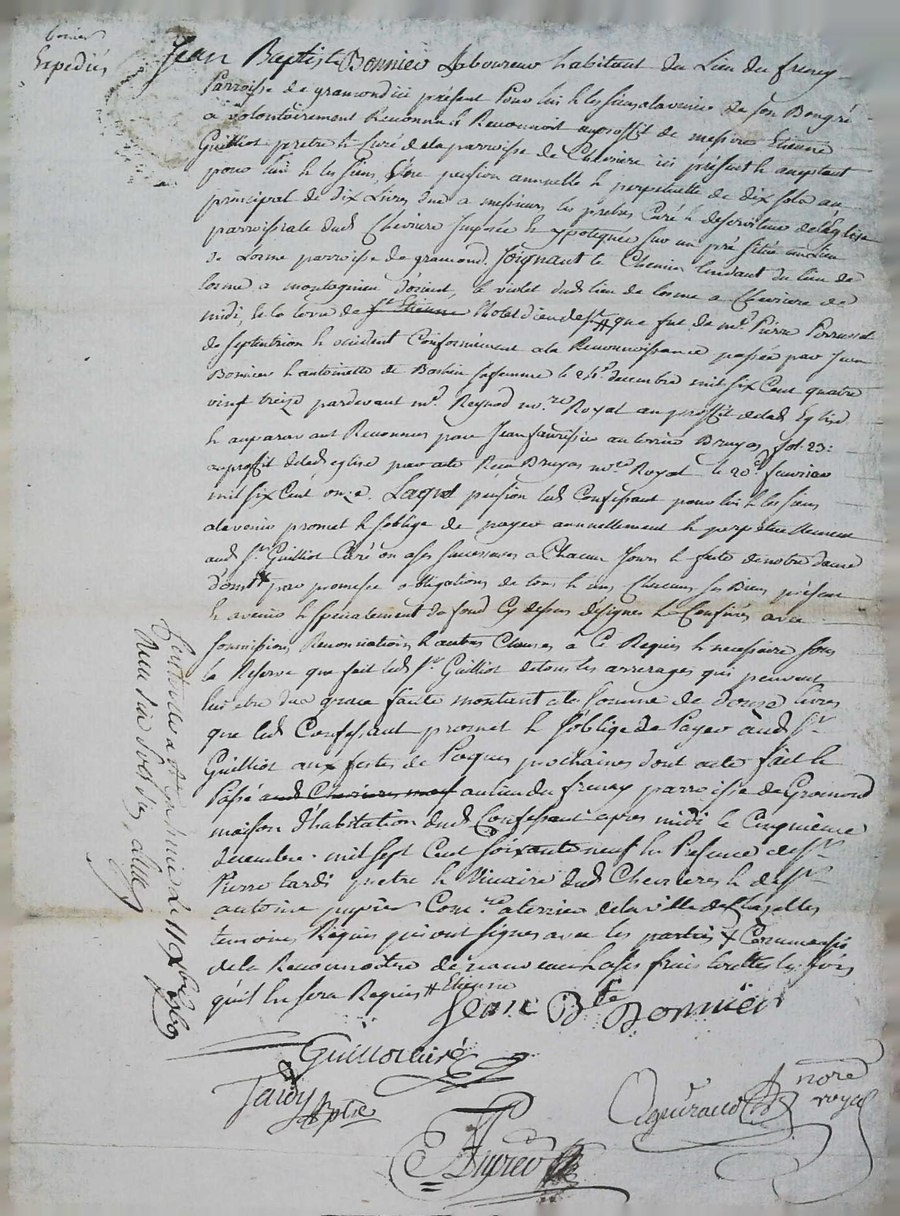 Expediés
Jean Baptiste Bonnier Laboureur habitant du Lieu du freney
Parroisse de gramond ici présent Pour lui & les siens alavenir de son Bongré
a volontairement Reconnu & Reconnoit auproffit de messire Etienne
Guilliot pretre & Curé dela parroisse de Chevriere ici présent & aceptant
pour lui & les siens, pension annuelle & perpetuelle de dix sols au
principal de dix Livres due a messieurs les pretres Curé & deserviteur de léglise
parroissiale dud Chevriere Imposée & ypotequée sur un pré situé au Lieu
de Lorme parroisse de gramond. Joignant le Chemin tendant du lieu de
lorme a montagnieu d'orient, le violet dud lieu de lorme a Chevriere de
midi, & la terre de st Etienne lhotel dieu de # que fut de me Pierre
de septentrion & occident Conformément ala Reconnoissance passée par Jean
Bonnier & antoinette de sa femme le decembre mil six Cent quatre
vingt treize pardevant me Reynod nore Royal auproffit delad Eglise
& auparavant Reconnu par Jean au terrier Bruyas, fol. 23:
auproffit delad eglise par acte Reçu Bruyas nore Royal le 20e fevrier
mil six Cent onze. Laquel pension led Confessant pour lui & les siens
alavenir promet & soblige de payer annuellement & perpétuellement
aud sr Guilliot Curé ou a ses successeurs a Chacun Jour & feste de notre dame
d'oust par promesse obligations de tous & uns Chacuns ses Biens présents
& avenir & spécialement du fond Cy dessus désigné & Confiné, avec
soumissions Renonciations & autres Clauses a Ce Requis & necessaire sous
la Reserve que fait led sr Guilliot detous les arrerages qui peuvent
lui etre due grace faite montant ala somme de douze livres
que led Confessant promet & soblige de Payer aud sr
Guilliot aux festes de Paques prochaines dont acte fait &
Passé aud Chevrieres au lieu du freney parroisse de Gramond
maison d'habitation dud Confessant apres midi le Cinquieme
decembre mil sept Cent soixante neuf En Présence de sr
Pierre tardi pretre & Vicaire dud Chevrieres & de sr
antoine Comre a terrier dela ville de
temoins Requis qui ont signés avec les parties &
dela Reconnoitre de nouveau a ses frais toutes les fois
quil en sera Requis # Etienne
Jean Bte Bonnier
Guilliot curé
Tardy
nore
royal